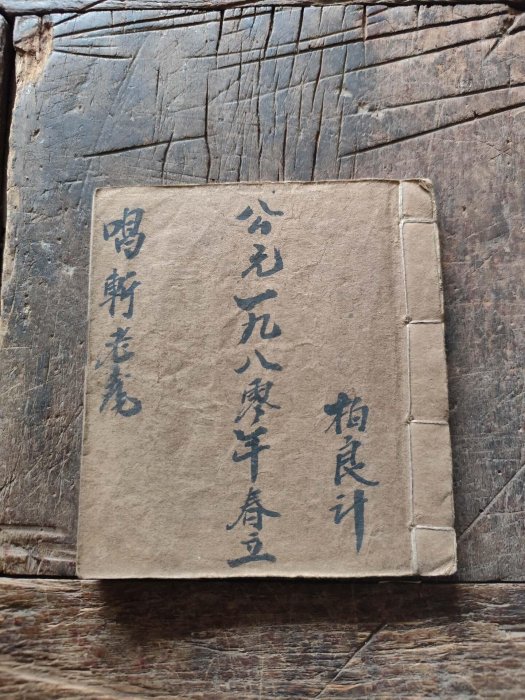 柏良计
公元一九八零年春立
唱斬老